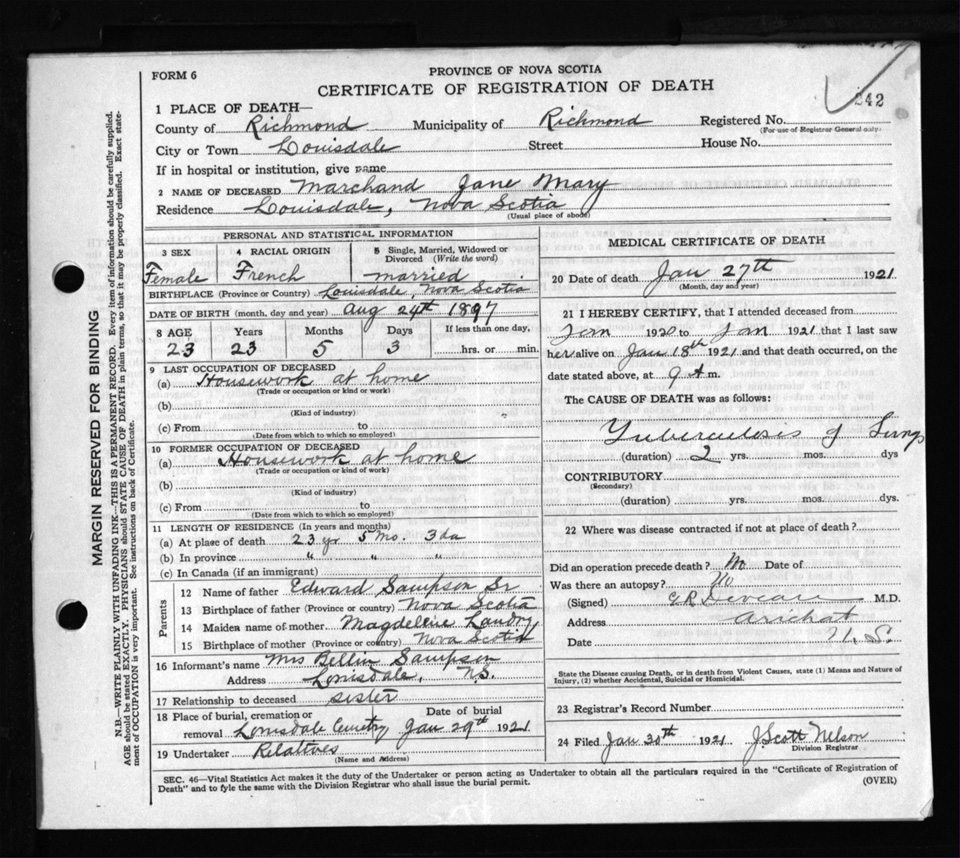 FORM 6
PROVINCE OF NOVA SCOTIA
CERTIFICATE OF REGISTRATION OF DEATH
242
1 PLACE OF DEATH—
County of Richmond Municipality of Richmond Registered No.
(For use of Registrar General only)
City or Town Louisdale Street House No.
If in hospital or institution, give name
2 NAME OF DECEASED Marchand Jane Mary
Residence Louisdale, Nova Scotia
(Usual place of abode)
PERSONAL AND STATISTICAL INFORMATION
3 SEX 4 RACIAL ORIGIN 5 Single, Married, Widowed or Divorced (Write the word)
Female French married
BIRTHPLACE (Province or Country) Louisdale, Nova Scotia
DATE OF BIRTH (month, day and year) Aug 24th 1897
8 AGE Years Months Days If less than one day,
23 23 5 3 hrs. or min.
9 LAST OCCUPATION OF DECEASED
(a) Housework at home
(Trade or occupation or kind or work)
(b)
(Kind of industry)
(c) From to
(Date from which to which so employed)
10 FORMER OCCUPATION OF DECEASED
(a) Housework at home
(Trade or occupation or kind of work)
(b)
(Kind of industry)
(c) From to
(Date from which to which so employed)
11 LENGTH OF RESIDENCE (In years and months)
(a) At place of death 23 yr 5 mo. 3 da
(b) In province " " "
(c) In Canada (if an immigrant)
Parents
12 Name of father Edward Sampson Sr
13 Birthplace of father (Province or country) Nova Scotia
14 Maiden name of mother Magdelene Landry
15 Birthplace of mother (Province or country) Nova Scotia
16 Informant's name Mrs Bellin Sampson
Address Louisdale, N.S.
17 Relationship to deceased sister
18 Place of burial, cremation or removal Louisdale Cemetry Date of burial Jan 29th 1921
19 Undertaker Relatives
(Name and Address)
MEDICAL CERTIFICATE OF DEATH
20 Date of death Jan 27th 1921
(Month, day and year)
21 I HEREBY CERTIFY, that I attended deceased from
Jan 1920 to Jan 1921 that I last saw
her alive on Jan 18th 1921 and that death occurred, on the
date stated above, at 9 A m.
The CAUSE OF DEATH was as follows:
Tuberculosis of Lungs
(duration) 2 yrs. mos. dys
CONTRIBUTORY
(Secondary)
(duration) yrs. mos. dys.
22 Where was disease contracted if not at place of death?
Did an operation precede death? No Date of
Was there an autopsy? No
(Signed) M.D.
Address Arichat
Date N.S.
State the Disease causing Death, or in death from Violent Causes, state (1) Means and Nature of
Injury, (2) whether Accidental, Suicidal or Homicidal.
23 Registrar's Record Number
24 Filed Jan 30th 1921 J Scott Nelson
Division Registrar
SEC. 46—Vital Statistics Act makes it the duty of the Undertaker or person acting as Undertaker to obtain all the particulars required in the "Certificate of Registration of
Death" and to fyle the same with the Division Registrar who shall issue the burial permit.
(OVER)
MARGIN RESERVED FOR BINDING
N.B.—WRITE PLAINLY WITH UNFADING INK—THIS IS A PERMANENT RECORD. Every item of information should be carefully supplied.
AGE should be stated EXACTLY. PHYSICIANS should STATE CAUSE OF DEATH in plain terms, so that it may be properly classified. Exact state-
ment of OCCUPATION is very important. See instructions on back of Certificate.